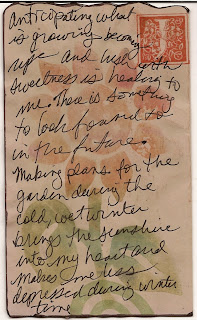 Anticipating what
is growing becoming
ripe and lush with
sweetness is healing to
me. There is something
to look forward to
in the future.
Making plans for the
garden during the
cold wet winter
brings the sunshine
into my heart and
makes me less
depressed during winter
time